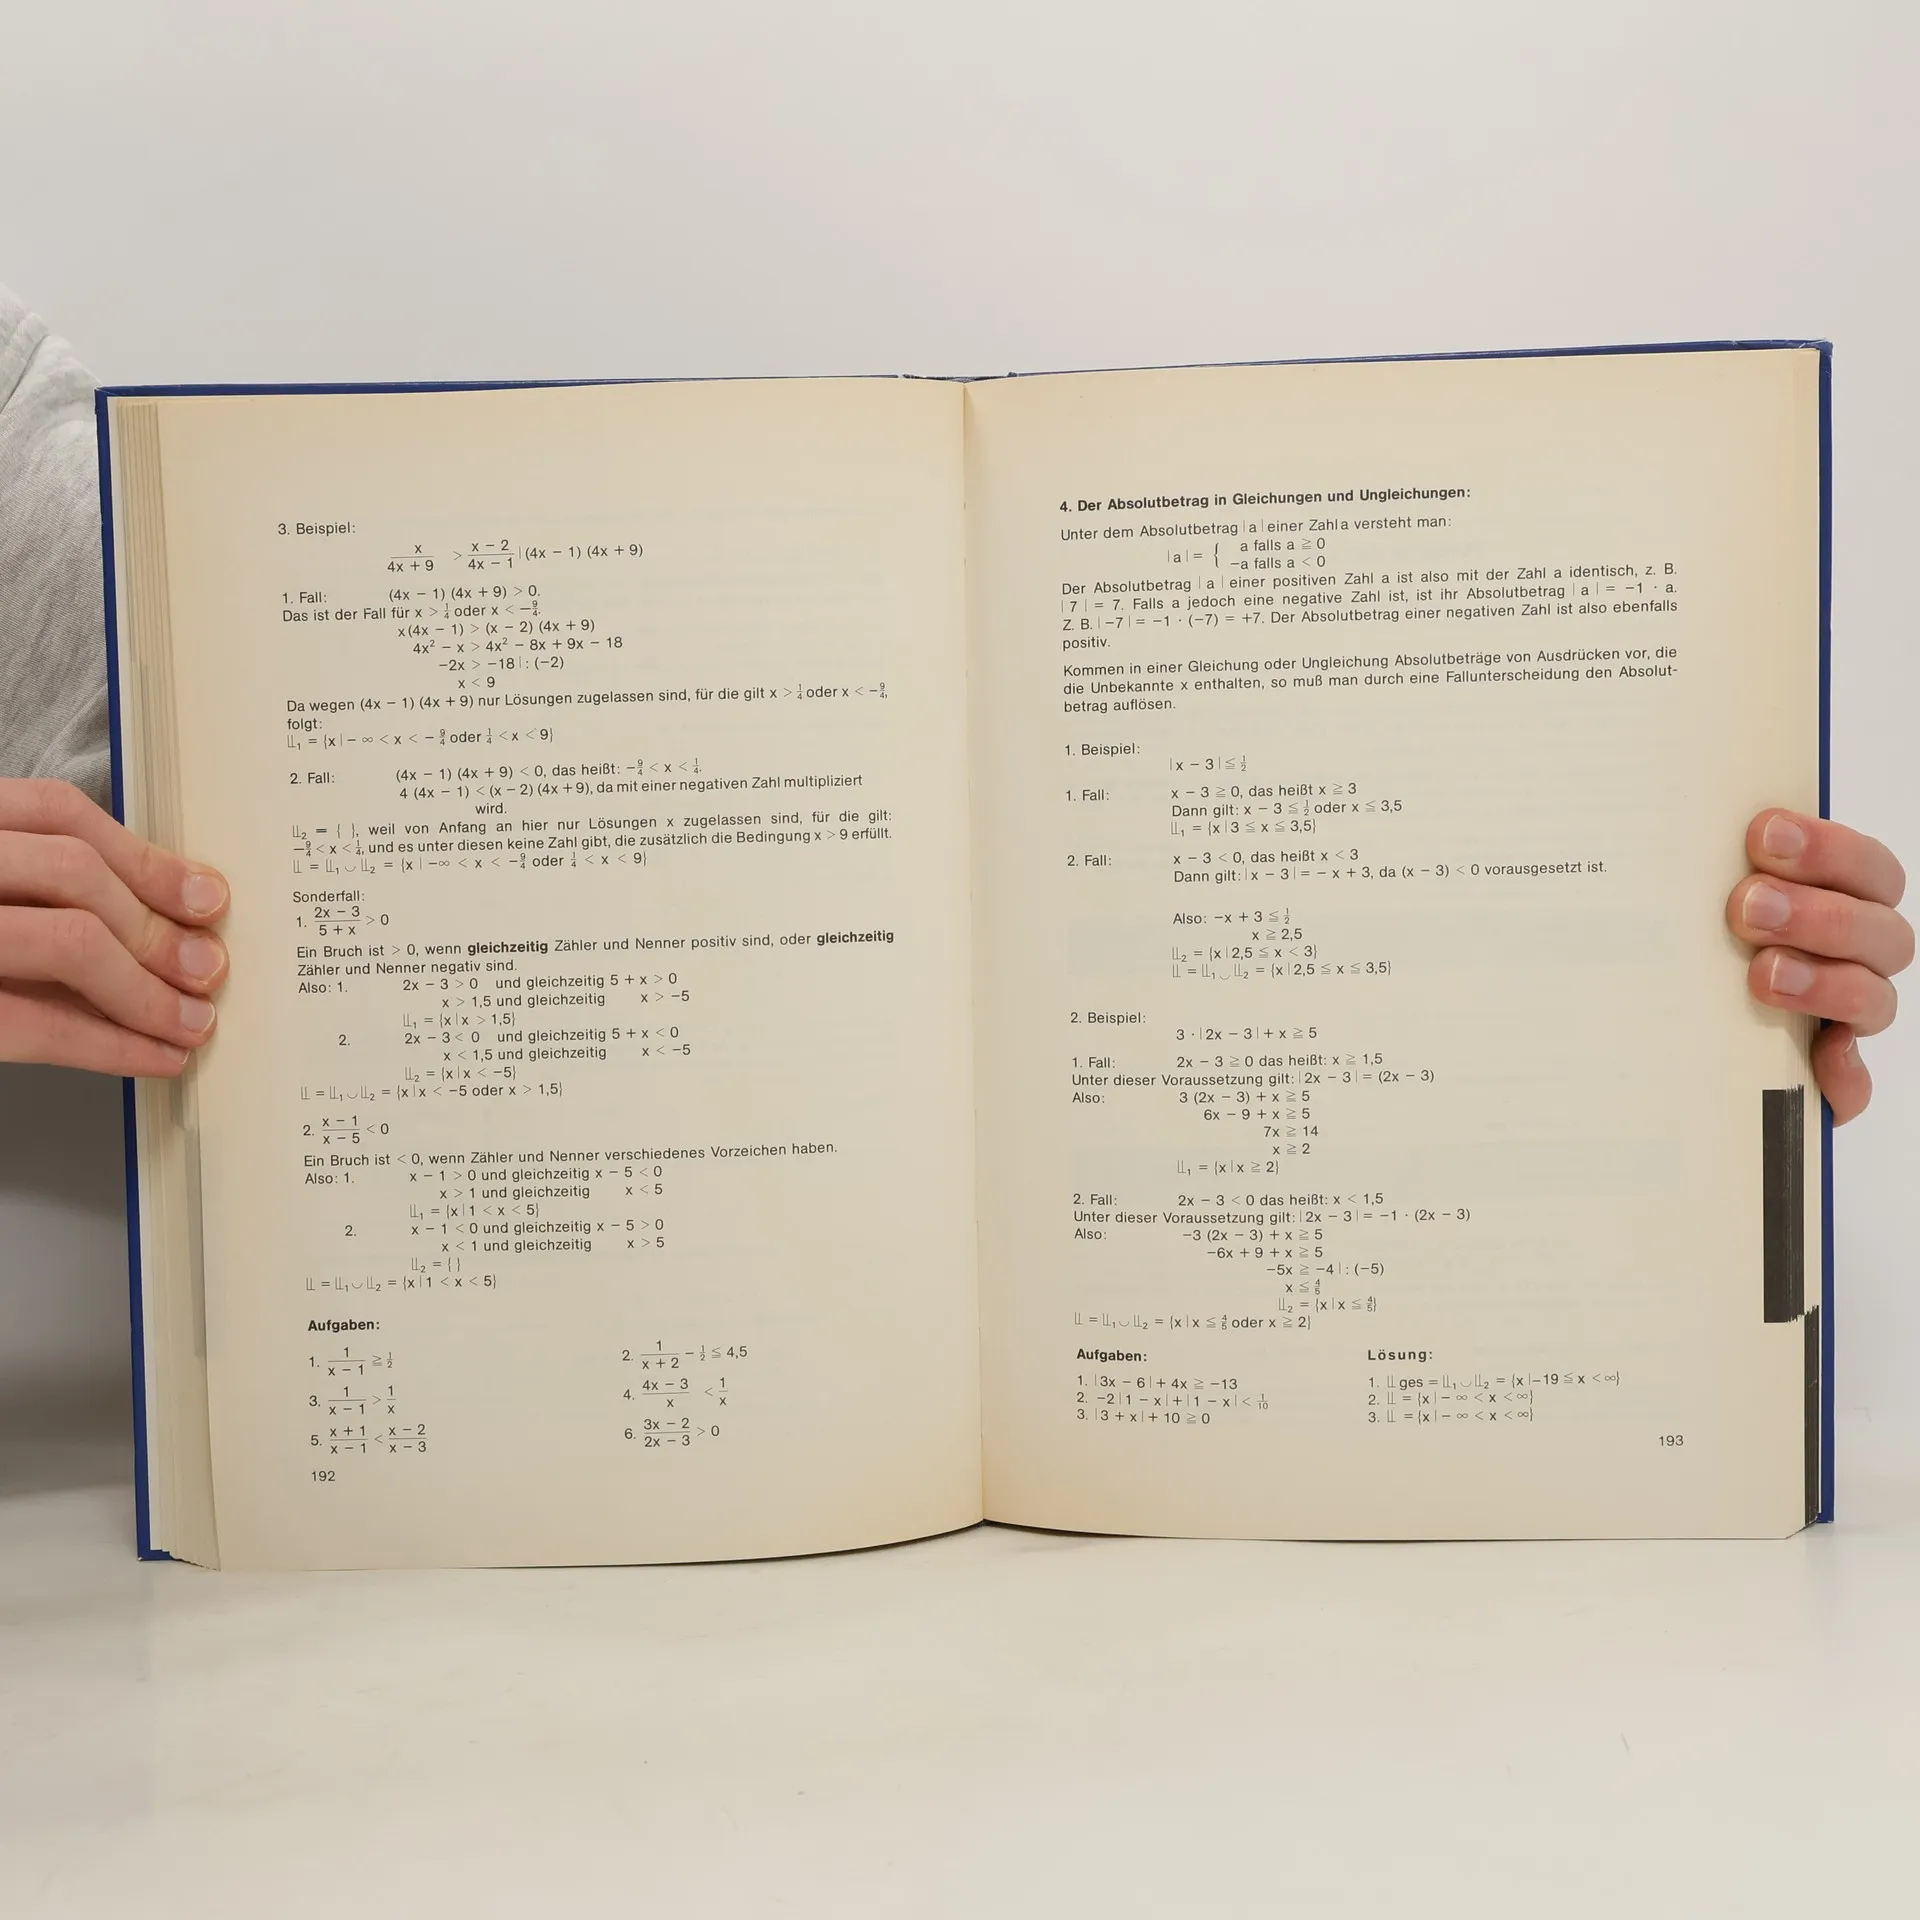 3. Beispiel:
x/(4x + 9) > (x − 2)/(4x − 1) | (4x − 1) (4x + 9)
1. Fall: (4x − 1) (4x + 9) > 0.
Das ist der Fall für x > 1/4 oder x < −9/4.
x (4x − 1) > (x − 2) (4x + 9)
4x² − x > 4x² − 8x + 9x − 18
−2x > −18 | : (−2)
x < 9
Da wegen (4x − 1) (4x + 9) nur Lösungen zugelassen sind, für die gilt x > 1/4 oder x < −9/4,
folgt:
𝕃₁ = {x | − ∞ < x < − 9/4 oder 1/4 < x < 9}
2. Fall: (4x − 1) (4x + 9) < 0, das heißt: −9/4 < x < 1/4.
4 (4x − 1) < (x − 2) (4x + 9), da mit einer negativen Zahl multipliziert
wird.
𝕃₂ = { }, weil von Anfang an hier nur Lösungen x zugelassen sind, für die gilt:
−9/4 < x < 1/4, und es unter diesen keine Zahl gibt, die zusätzlich die Bedingung x > 9 erfüllt.
𝕃 = 𝕃₁ ∪ 𝕃₂ = {x | −∞ < x < −9/4 oder 1/4 < x < 9}
Sonderfall:
1. (2x − 3)/(5 + x) > 0
Ein Bruch ist > 0, wenn gleichzeitig Zähler und Nenner positiv sind, oder gleichzeitig
Zähler und Nenner negativ sind.
Also: 1. 2x − 3 > 0 und gleichzeitig 5 + x > 0
x > 1,5 und gleichzeitig x > −5
𝕃₁ = {x | x > 1,5}
2. 2x − 3 < 0 und gleichzeitig 5 + x < 0
x < 1,5 und gleichzeitig x < −5
𝕃₂ = {x | x < −5}
𝕃 = 𝕃₁ ∪ 𝕃₂ = {x | x < −5 oder x > 1,5}
2. (x − 1)/(x − 5) < 0
Ein Bruch ist < 0, wenn Zähler und Nenner verschiedenes Vorzeichen haben.
Also: 1. x − 1 > 0 und gleichzeitig x − 5 < 0
x > 1 und gleichzeitig x < 5
𝕃₁ = {x | 1 < x < 5}
2. x − 1 < 0 und gleichzeitig x − 5 > 0
x < 1 und gleichzeitig x > 5
𝕃₂ = { }
𝕃 = 𝕃₁ ∪ 𝕃₂ = {x | 1 < x < 5}
Aufgaben:
1. 1/(x − 1) ≧ 1/2 2. 1/(x + 2) − 1/2 ≦ 4,5
3. 1/(x − 1) > 1/x 4. (4x − 3)/x < 1/x
5. (x + 1)/(x − 1) < (x − 2)/(x − 3) 6. (3x − 2)/(2x − 3) > 0
192
4. Der Absolutbetrag in Gleichungen und Ungleichungen:
Unter dem Absolutbetrag | a | einer Zahl a versteht man:
| a | = { a falls a ≧ 0
−a falls a < 0
Der Absolutbetrag | a | einer positiven Zahl a ist also mit der Zahl a identisch, z. B.
| 7 | = 7. Falls a jedoch eine negative Zahl ist, ist ihr Absolutbetrag | a | = −1 · a.
Z. B. | −7 | = −1 · (−7) = +7. Der Absolutbetrag einer negativen Zahl ist also ebenfalls
positiv.
Kommen in einer Gleichung oder Ungleichung Absolutbeträge von Ausdrücken vor, die
die Unbekannte x enthalten, so muß man durch eine Fallunterscheidung den Absolut-
betrag auflösen.
1. Beispiel:
| x − 3 | ≦ 1/2
1. Fall: x − 3 ≧ 0, das heißt x ≧ 3
Dann gilt: x − 3 ≦ 1/2 oder x ≦ 3,5
𝕃₁ = {x | 3 ≦ x ≦ 3,5}
2. Fall: x − 3 < 0, das heißt x < 3
Dann gilt: | x − 3 | = − x + 3, da (x − 3) < 0 vorausgesetzt ist.
Also: −x + 3 ≦ 1/2
x ≧ 2,5
𝕃₂ = {x | 2,5 ≦ x < 3}
𝕃 = 𝕃₁ ∪ 𝕃₂ = {x | 2,5 ≦ x ≦ 3,5}
2. Beispiel:
3 · | 2x − 3 | + x ≧ 5
1. Fall: 2x − 3 ≧ 0 das heißt: x ≧ 1,5
Unter dieser Voraussetzung gilt: | 2x − 3 | = (2x − 3)
Also: 3 (2x − 3) + x ≧ 5
6x − 9 + x ≧ 5
7x ≧ 14
x ≧ 2
𝕃₁ = {x | x ≧ 2}
2. Fall: 2x − 3 < 0 das heißt: x < 1,5
Unter dieser Voraussetzung gilt: | 2x − 3 | = −1 · (2x − 3)
Also: −3 (2x − 3) + x ≧ 5
−6x + 9 + x ≧ 5
−5x ≧ −4 | : (−5)
x ≦ 4/5
𝕃₂ = {x | x ≦ 4/5}
𝕃 = 𝕃₁ ∪ 𝕃₂ = {x | x ≦ 4/5 oder x ≧ 2}
Aufgaben: Lösung:
1. | 3x − 6 | + 4x ≧ −13 1. 𝕃 ges = 𝕃₁ ∪ 𝕃₂ = {x | −19 ≦ x < ∞}
2. −2 | 1 − x | + | 1 − x | < 1/10 2. 𝕃 = {x | − ∞ < x < ∞}
3. | 3 + x | + 10 ≧ 0 3. 𝕃 = {x | − ∞ < x < ∞}
193